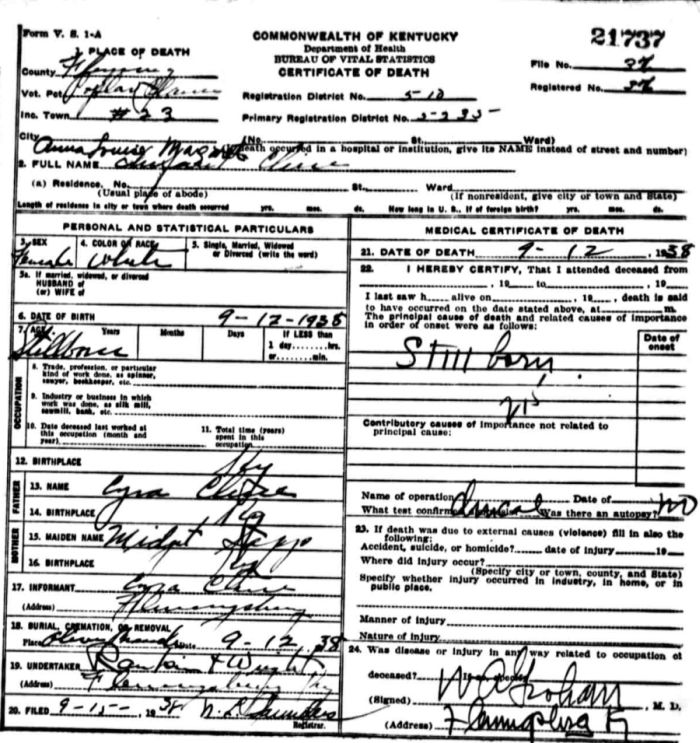 Form V. S. 1-A
COMMONWEALTH OF KENTUCKY
Department of Health
BUREAU OF VITAL STATISTICS
CERTIFICATE OF DEATH
21737
1. PLACE OF DEATH
County Fleming
Vot. Pct.
Inc. Town #23
City
Registration District No. 510
Primary Registration District No.
File No.
Registered No.
(No. St. Ward)
(If death occurred in a hospital or institution, give its NAME instead of street and number)
2. FULL NAME Anna Louise Cline
(a) Residence. No. St. Ward
(Usual place of abode) (If nonresident, give city or town and State)
Length of residence in city or town where death occurred yrs. mos. ds. How long in U. S., if of foreign birth? yrs. mos. ds.
PERSONAL AND STATISTICAL PARTICULARS
3. SEX Female
4. COLOR OR RACE White
5. Single, Married, Widowed or Divorced (write the word)
5a. If married, widowed, or divorced
HUSBAND of
(or) WIFE of
6. DATE OF BIRTH 9-12-1938
7. AGE Years Months Days If LESS than
1 day,......hrs.
or......min.
Stillborn
OCCUPATION
8. Trade, profession, or particular
kind of work done, as spinner,
sawyer, bookkeeper, etc.
9. Industry or business in which
work was done, as silk mill,
sawmill, bank, etc.
10. Date deceased last worked at
this occupation (month and
year)
11. Total time (years)
spent in this
occupation
12. BIRTHPLACE Ky
FATHER
13. NAME Cline
14. BIRTHPLACE Ky
MOTHER
15. MAIDEN NAME
16. BIRTHPLACE Ky
17. INFORMANT Cline
(Address) Flemingsburg
18. BURIAL, CREMATION, OR REMOVAL
Place Date 9-12 1938
19. UNDERTAKER Rankin & Wright
(Address) Flemingsburg Ky
20. FILED 9-15- 1938 Saunders
Registrar.
MEDICAL CERTIFICATE OF DEATH
21. DATE OF DEATH 9-12 1938
22. I HEREBY CERTIFY, That I attended deceased from
, 19 to , 19
I last saw h alive on , 19 , death is said
to have occurred on the date stated above, at m.
The principal cause of death and related causes of importance
in order of onset were as follows:
Date of
onset
Still born
Contributory causes of importance not related to
principal cause:
Name of operation Date of
What test confirmed diagnosis Was there an autopsy? No
23. If death was due to external causes (violence) fill in also the
following:
Accident, suicide, or homicide? date of injury 19
Where did injury occur?
(Specify city or town, county, and State)
Specify whether injury occurred in industry, in home, or in
public place.
Manner of injury
Nature of injury
24. Was disease or injury in any way related to occupation of
deceased? If so specify
(Signed) M. D.
(Address) Flemingsburg Ky